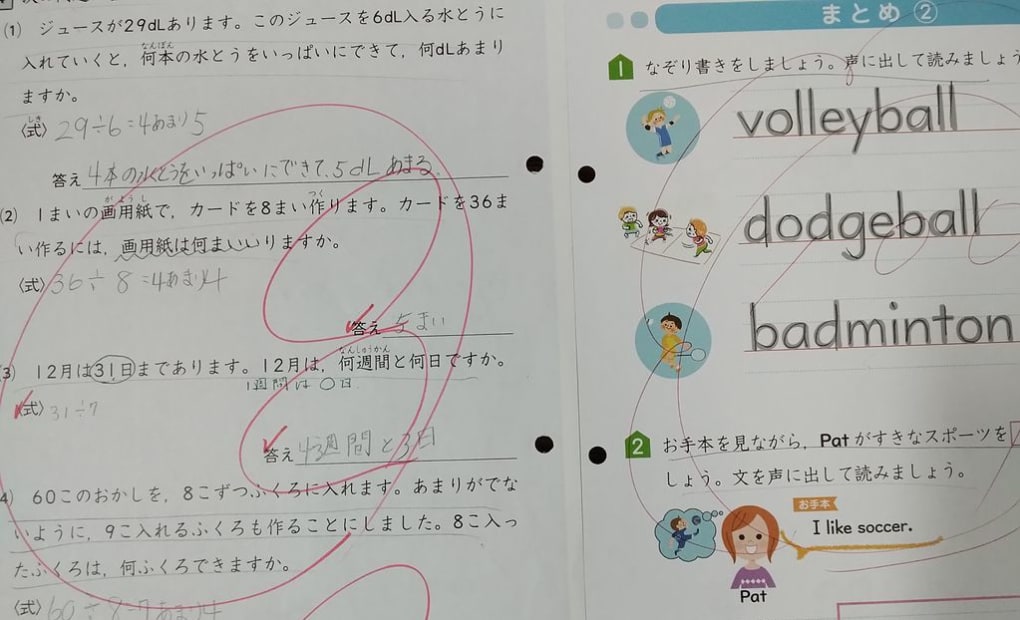 (1) ジュースが29dLあります。このジュースを6dL入る水とうに
入れていくと，何本の水とうをいっぱいにできて，何dLあまり
ますか。
〈式〉29÷6=4あまり5
答え 4本の水とうをいっぱいにできて、5dLあまる。
(2) 1まいの画用紙で，カードを8まい作ります。カードを36ま
い作るには，画用紙は何まいいりますか。
〈式〉36÷8=4あまり4
答え 5まい
3) 12月は31日まであります。12月は，何週間と何日ですか。
1週間は〇日
〈式〉31÷7
答え 4週間と3日
4) 60このおかしを，8こずつふくろに入れます。あまりがでな
いように，9こ入れるふくろも作ることにしました。8こ入っ
たふくろは，何ふくろできますか。
〈式〉60÷8=7あまり4
まとめ②
1 なぞり書きをしましょう。声に出して読みましょう
volleyball
dodgeball
badminton
2 お手本を見ながら，Patがすきなスポーツを
しょう。文を声に出して読みましょう。
お手本
I like soccer.
Pat